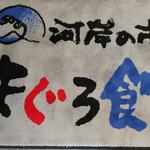 河岸の市
まぐろ館